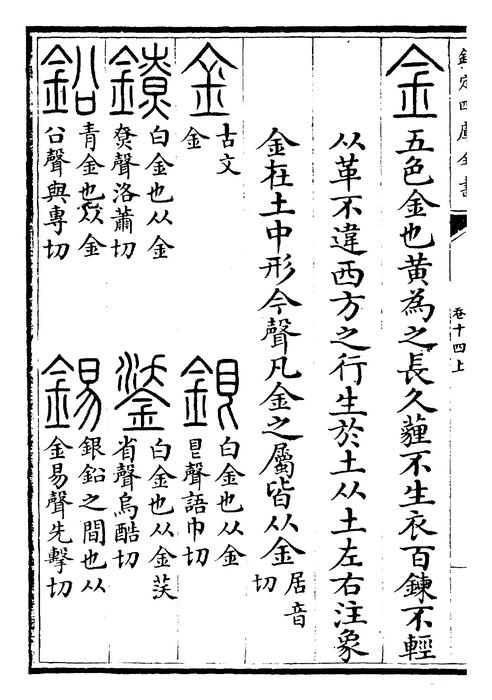 欽定四庫全書
卷十四上
金五色金也黃為之長久薶不生衣百鍊不輕
从革不違西方之行生於土从土左右注象
金在土中形今聲凡金之屬皆从金居音切
金古文金
銀白金也从金㫐聲語巾切
鐐白金也从金尞聲洛蕭切
鋈白金也从金芺省聲烏酷切
鉛青金也从金㕣聲與專切
錫銀鉛之間也从金易聲先擊切